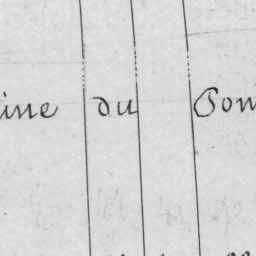 ine du Pon